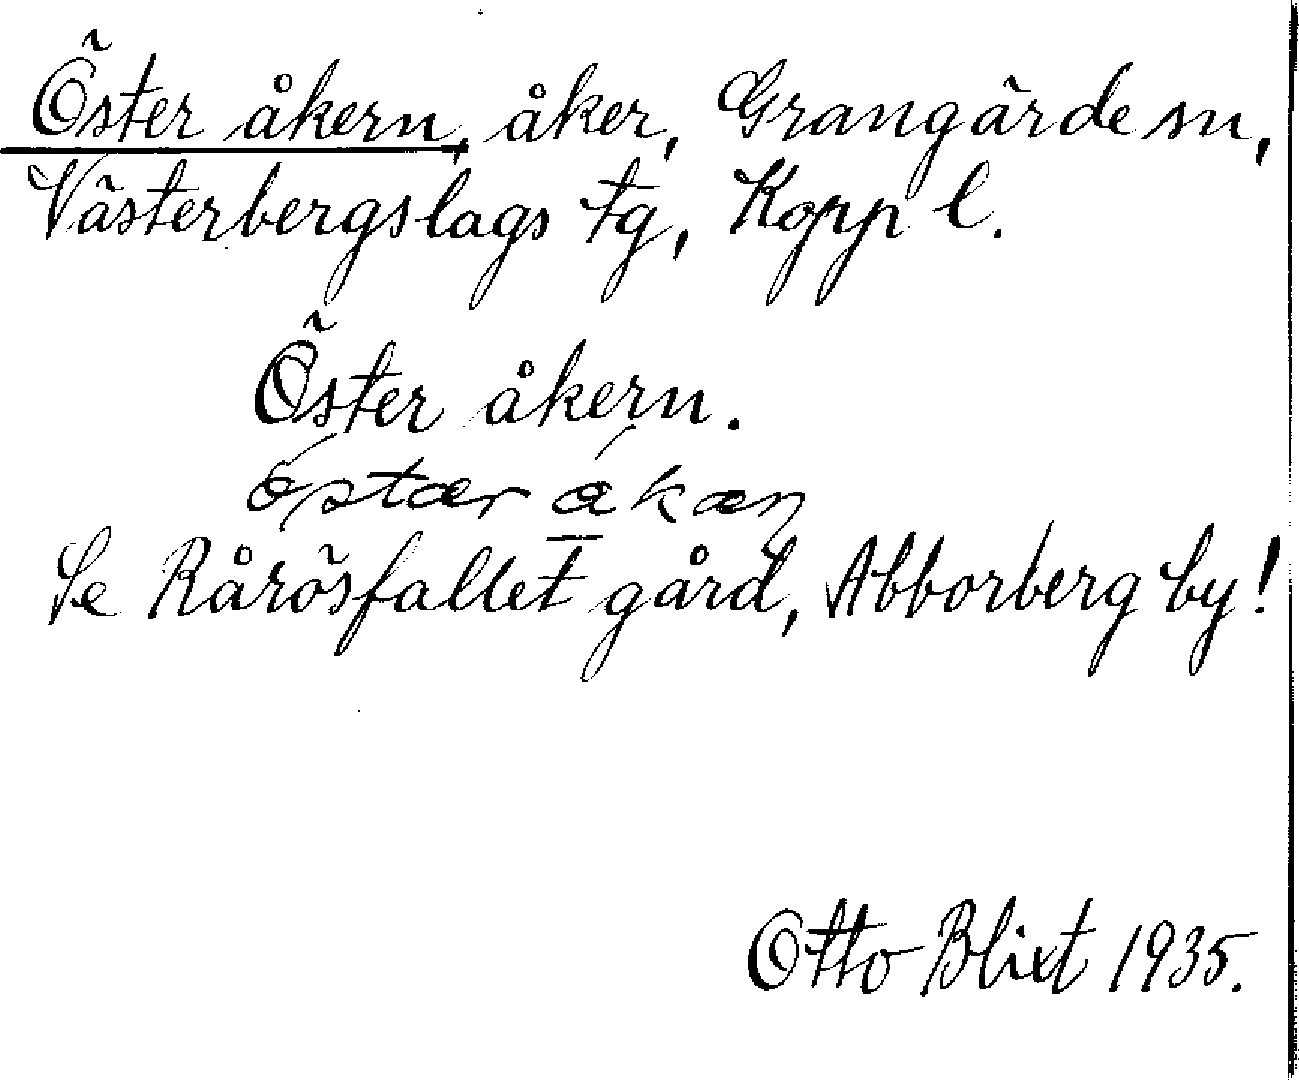 Öster åkern, åker, Grangärde sn,
Västerbergslags tg, Kopp l.
Öster åkern.
Se Rårösfallet gård, Abborberg by!
Otto Blixt 1935.